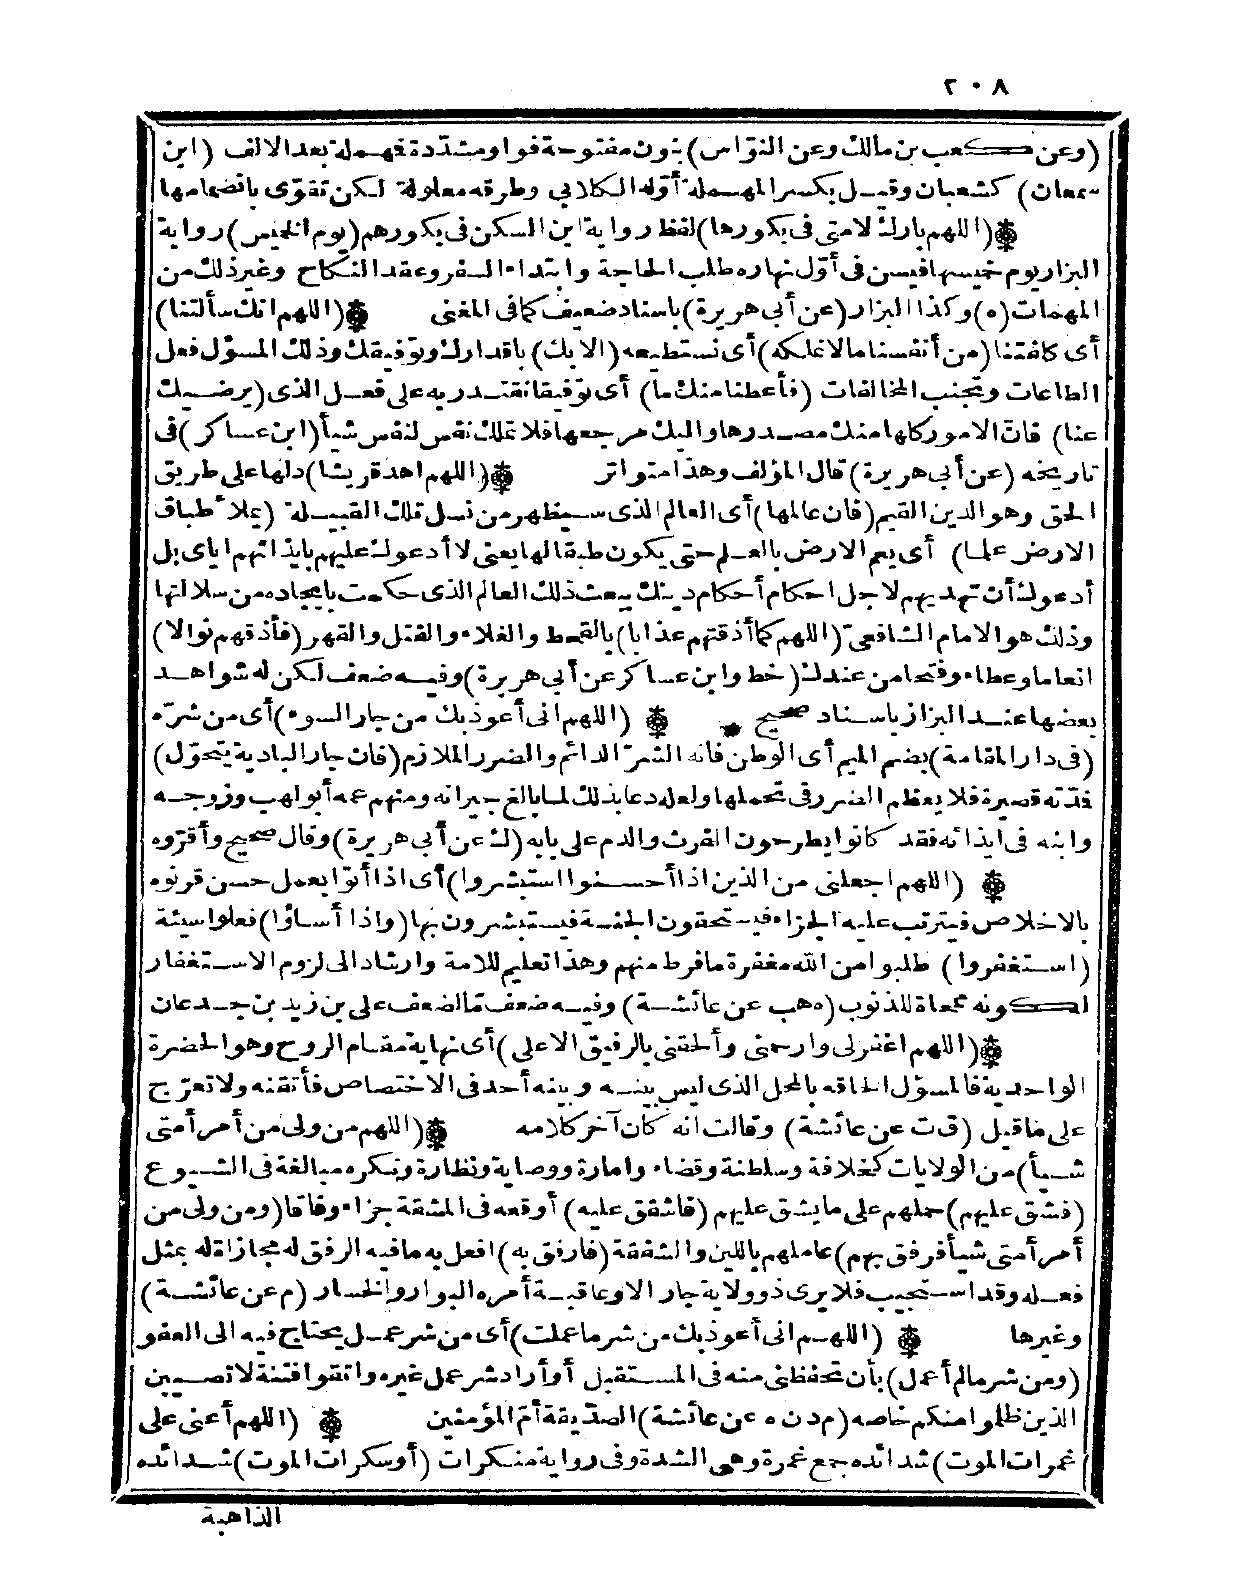 ٢٠٨
(وعن كعب بن مالك وعن النوّاس) بنون مفتوحة فواو مشدّدة فمهملة بعد الالف (ابن
سمعان) كشعبان وقيل بكسر المهملة أوّله الكلابي وطرقه معلولة لكن تقوّى بانضمامها
۞(اللهم بارك لامتى فى بكورها) لفظ رواية ابن السكن فى بكورهم (يوم الخميس) رواية
البزار يوم خميسها فيسن فى أوّل نهاره طلب الحاجة وابتداء السفر وعقد النكاح وغير ذلك من
المهمات (ه) وكذا البزار (عن أبى هريرة) باسناد ضعيف كما فى المغنى ۞(اللهم انك سألتنا)
أى كلفتنا (من أنفسنا ما لا نملكه) أى نستطيعه (الا بك) باقدارك وتوفيقك وذلك المسؤل فعل
الطاعات وتجنب المخالفات (فأعطنا منك ما) أى توفيقا نقتدر به على فعل الذى (يرضيك
عنا) فانّ الامور كلها منك مصدرها واليك مرجعها فلا تملك نفس لنفس شيأ (ابن عساكر) فى
تاريخه (عن أبى هريرة) قال المؤلف وهذا متواتر ۞(اللهم اهد قريشا) دلها على طريق
الحق وهو الدين القيم (فان عالمها) أى العالم الذى سيظهر من نسل تلك القبيلة (يملأ طباق
الارض علما) أى يعم الارض بالعلم حتى يكون طبقا لها يعنى لا أدعوك عليهم بايذائهم اياى بل
أدعوك أن تهديهم لاجل احكام أحكام دينك ببعث ذلك العالم الذى حكمت بايجاده من سلالتها
وذلك هو الامام الشافعىّ (اللهم كما أذقتهم عذابا) بالقحط والغلاء والقتل والقهر (فأذقهم نوالا)
انعاما وعطاء وفتحا من عندك (خط وابن عساكر عن أبى هريرة) وفيه ضعف لكن له شواهد
بعضها عند البزار باسناد صحيح ۞ (اللهم انى أعوذ بك من جار السوء) أى من شرّه
(فى دار المقامة) بضم الميم أى الوطن فانه الشرّ الدائم والضرر الملازم (فان جار البادية يتحوّل)
فمدّته قصيرة فلا يعظم الضرر فى تحملها ولعله دعا بذلك لما بالغ جيرانه ومنهم عمه أبو لهب وزوجه
وابنه فى ايذائه فقد كانوا يطرحون الفرث والدم على بابه (ك عن أبى هريرة) وقال صحيح وأقرّوه
۞ (اللهم اجعلنى من الذين اذا أحسنوا استبشروا) أى اذا أتوا بعمل حسن قرنوه
بالاخلاص فيترتب عليه الجزاء فيستحقون الجنة فيستبشرون بها (واذا أساؤا) فعلوا سيئة
(استغفروا) طلبوا من الله مغفرة ما فرط منهم وهذا تعليم للامة وارشاد الى لزوم الاستغفار
لكونه ممحاة للذنوب (ه هب عن عائشة) وفيه ضعف مّا لضعف على بن زيد بن جدعان
۞(اللهم اغفر لى وارحمنى وألحقنى بالرفيق الاعلى) أى نهاية مقام الروح وهو الحضرة
الواحدية فالمسؤل الحاقه بالمحل الذى ليس بينه وبينه أحد فى الاختصاص فأتقنه ولا تعرّج
على ما قيل (ق ت عن عائشة) وقالت انه كان آخر كلامه ۞(اللهم من ولى من أمر أمتى
شيأ) من الولايات كخلافة وسلطنة وقضاء وامارة ووصاية ونظارة ونكره مبالغة فى الشيوع
(فشق عليهم) حملهم على ما يشق عليهم (فاشقق عليه) أوقعه فى المشقة جزاء وفاقا (ومن ولى من
أمر أمتى شيأ فرفق بهم) عاملهم باللين والشفقة (فارفق به) افعل به ما فيه الرفق له مجازاة له بمثل
فعله وقد استجيب فلا يرى ذو ولاية جار الا وعاقبة أمره البوار والخسار (م عن عائشة)
وغيرها ۞ (اللهم انى أعوذ بك من شر ما عملت) أى من شر عمل يحتاج فيه الى العفو
(ومن شر ما لم أعمل) بأن تحفظنى منه فى المستقبل أو أراد شر عمل غيره واتقوا فتنة لا تصيبن
الذين ظلموا منكم خاصه (م د ن ه عن عائشة) الصدّيقة أم المؤمنين ۞ (اللهم أعنى على
غمرات الموت) شدائده جمع غمرة وهى الشدة وفى رواية منكرات (أو سكرات الموت) شدائده
الذاهبة